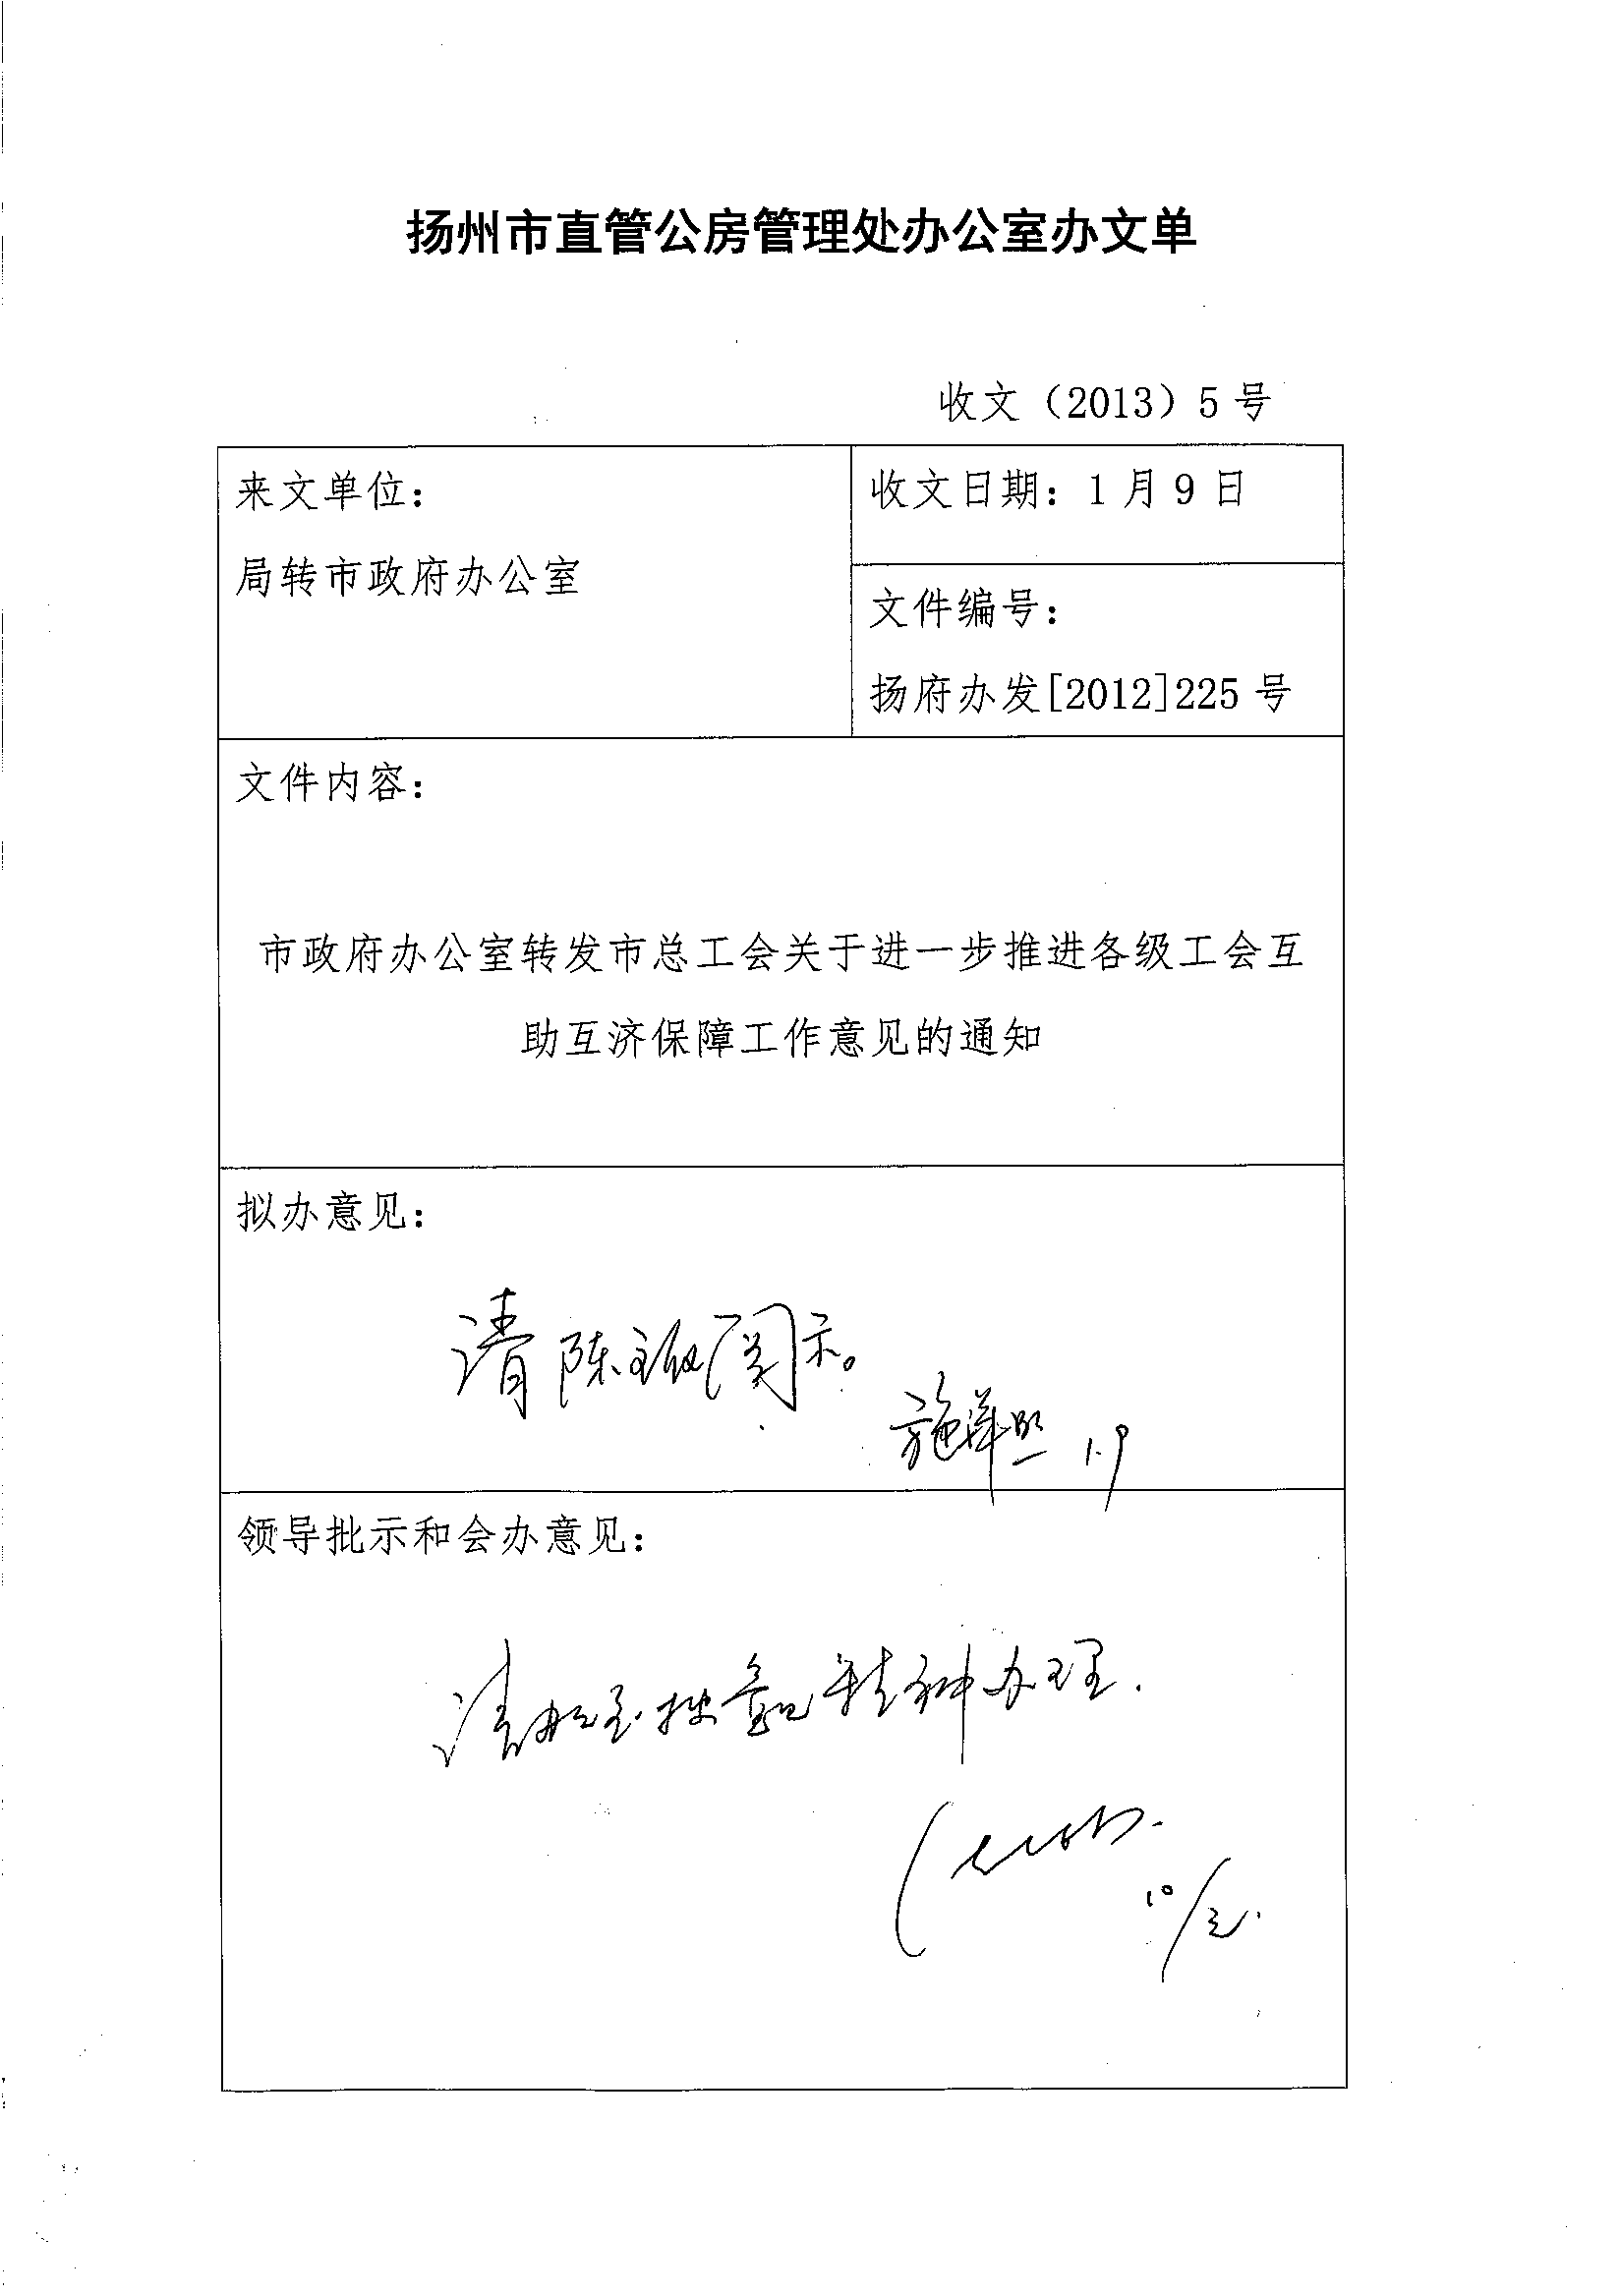 扬州市直管公房管理处办公室办文单
收文（2013）5号
来文单位：
局转市政府办公室
收文日期：1月9日
文件编号：
扬府办发[2012]225号
文件内容：
市政府办公室转发市总工会关于进一步推进各级工会互
助互济保障工作意见的通知
拟办意见：
请陈主任阅示。
1.9
领导批示和会办意见：
请 按 精神办理.